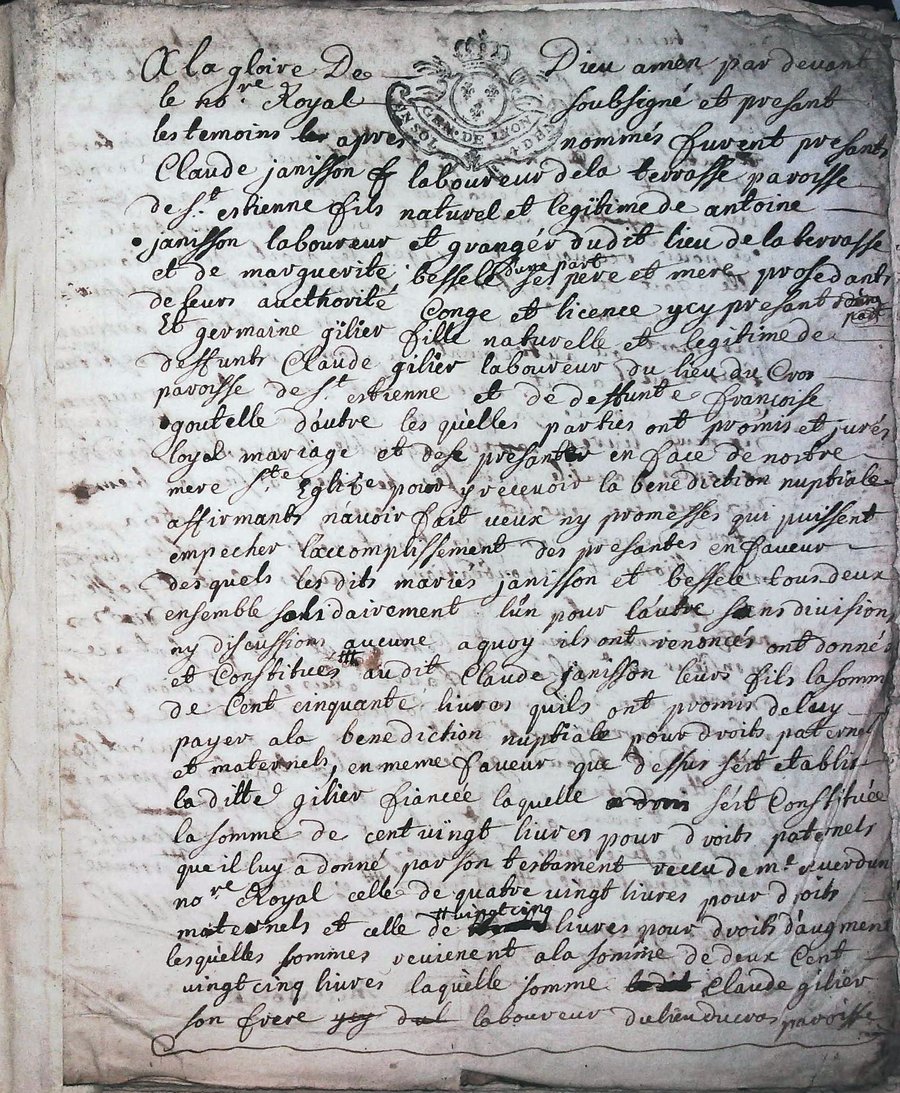 A la gloire De Dieu amen par devant
le no.re Royal soubsigné et presant
les temoins apres nommés furent presants
Claude janisson laboureur de la terrasse paroisse
de st. estienne fils naturel et legitime de antoine
janisson laboureur et granger dudit lieu de la terrasse
et de marguerite bessele d'une part ses pere et mere prosedants
de leurs aucthorité Conge et licence ycy presant d'une part
Et germaine gilier fille naturelle et legitime de
deffunts Claude gilier laboureur du lieu du Cros
paroisse de st. estienne et de deffunte francoise
goutelle d'autre les quelles parties ont promis et jurés
loyal mariage et de se presanter en face de nostre
mere ste. Eglize pour y recevoir la benediction nuptiale
affirmants navoir fait veux ny promesses qui puissent
empecher laccomplissement des presantes en faveur
desquels les dits mariés janisson et bessele tous deux
ensemble solidairement l'un pour lautre sans division
ny discussions aucune a quoy ils ont renoncés ont donnés
et Constitués audit Claude janisson leurs fils la somme
de Cent cinquante livres quils ont promis de luy
payer a la benediction nuptiale pour droits paternels
et maternels, en meme faveur que dessus sést etablie
la ditte gilier fiancée laquelle sést Constituée
la somme de cent vingt livres pour droits paternels
que il luy a donné par son testament reccu de me. verdun
no.re Royal celle de quatre vingt livres pour droits
maternels et celle de vingt cinq livres pour droits d'augment
lesquelles sommes revienent a la somme de deux Cent
vingt cinq livres laquelle somme Claude gilier
son frere ycy laboureur du lieu du cros paroisse
GEN. DE LYON